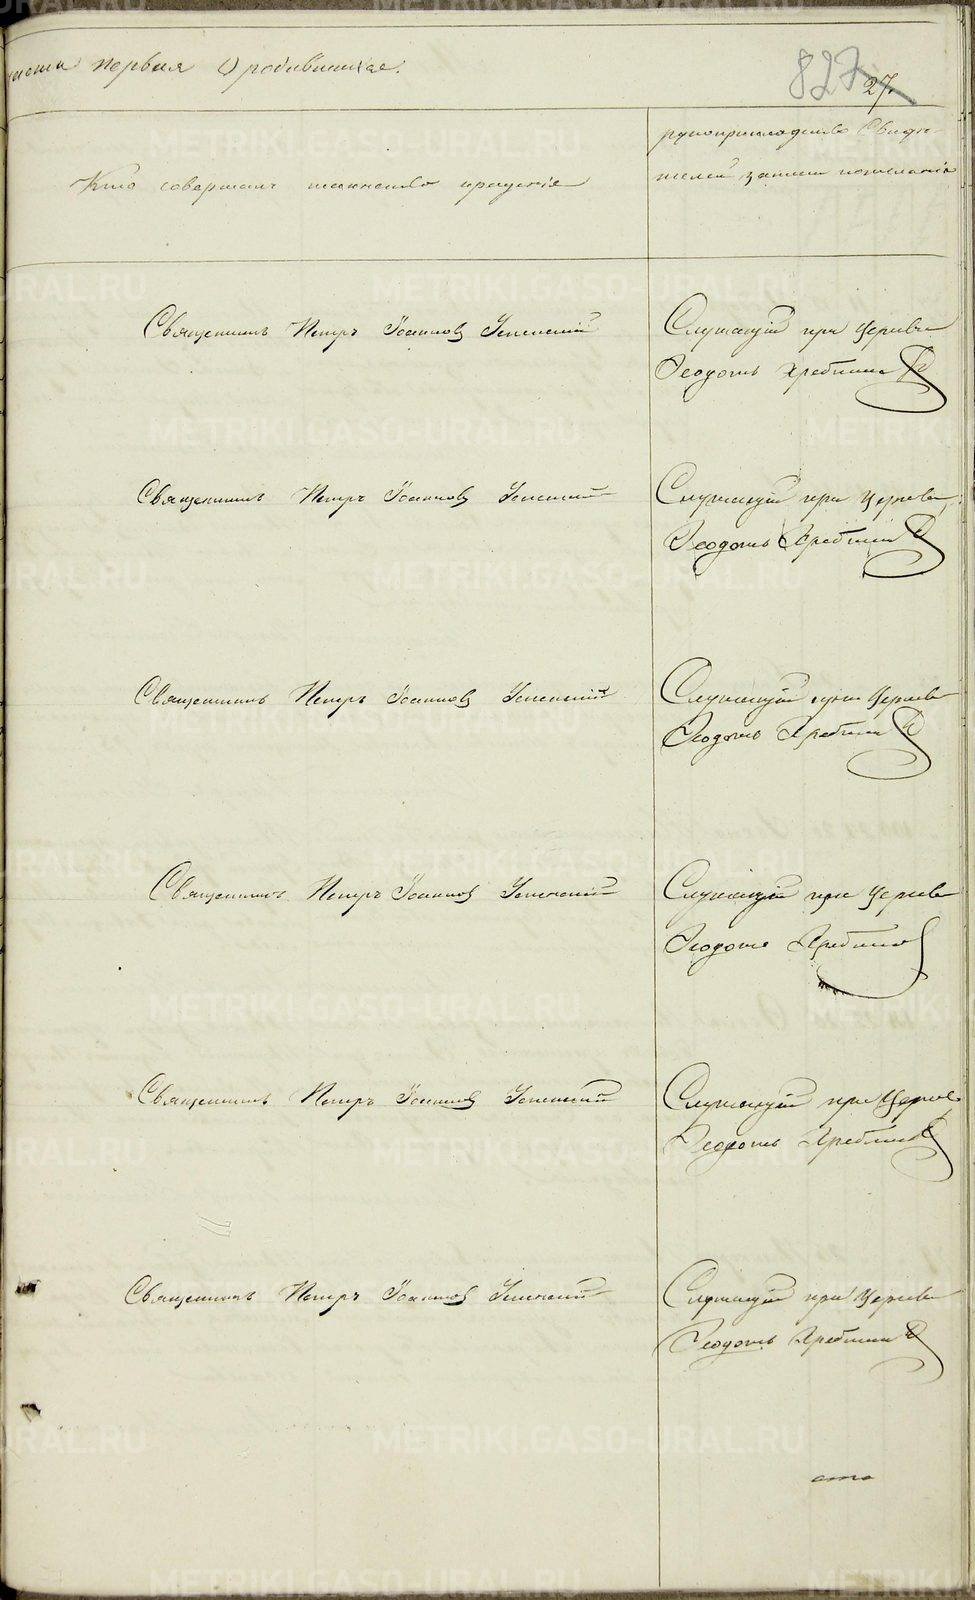 часть первая О родившихся.
827
27.
Кто совершалъ таинство крещенія
рукоприкладство Свидѣ-
телей записи по желанію
Священникъ Петръ Іоанновъ Успенскій
Служащій при Церкви
Ѳеодотъ Хребтинъ
Священникъ Петръ Іоанновъ Успенскій
Служащій при Церкви
Ѳеодотъ Хребтинъ
Священникъ Петръ Іоанновъ Успенскій
Служащій при Церкви
Ѳеодотъ Хребтинъ
Священникъ Петръ Іоанновъ Успенскій
Служащій при Церкви
Ѳеодотъ Хребтинъ
Священникъ Петръ Іоанновъ Успенскій
Служащій при Церкви
Ѳеодотъ Хребтинъ
Священникъ Петръ Іоанновъ Успенскій
Служащій при Церкви
Ѳеодотъ Хребтинъ
METRIKI.GASO-URAL.RU